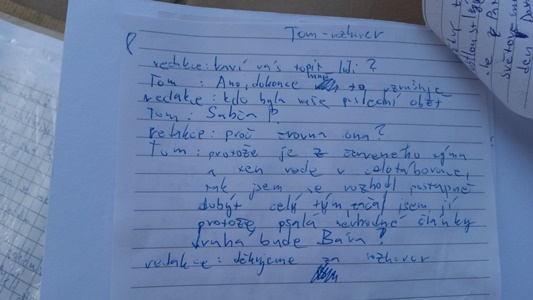 Tom - rozhovor
redakce: baví vás topit lidi?
Tom : Ano, dokonce mne to vzrušuje
redakce: kdo byla vaše poslední oběť
Tom : Sabča P.
redakce: proč zrovna ona?
Tom : protože je z červeného týmu
a ten vede v celotáborovce,
tak jsem se rozhodl postupně
dobýt celý tým začal jsem jí
protože psala nevhodné články
druhá bude Bára!
redakce: děkujeme za rozhovor